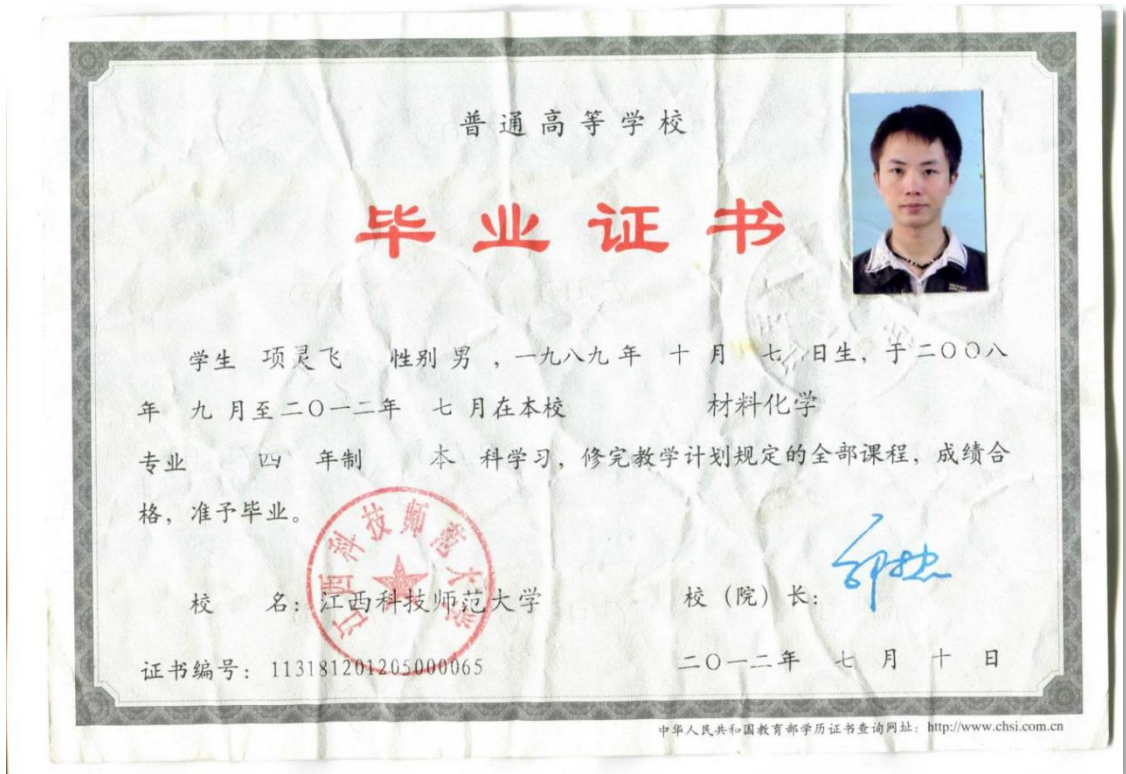 普通高等学校
毕业证书
学生 项灵飞 性别 男 ，一九八九 年 十 月 七 日生，于二〇〇八
年 九 月至二〇一二年 七 月在本校 材料化学
专业 四 年制 本 科学习，修完教学计划规定的全部课程，成绩合
格，准予毕业。
江西科技师范大学
校 名：江西科技师范大学 校（院）长：
证书编号：113181201205000065 二〇一二年 七 月 十 日
中华人民共和国教育部学历证书查询网址：http://www.chsi.com.cn